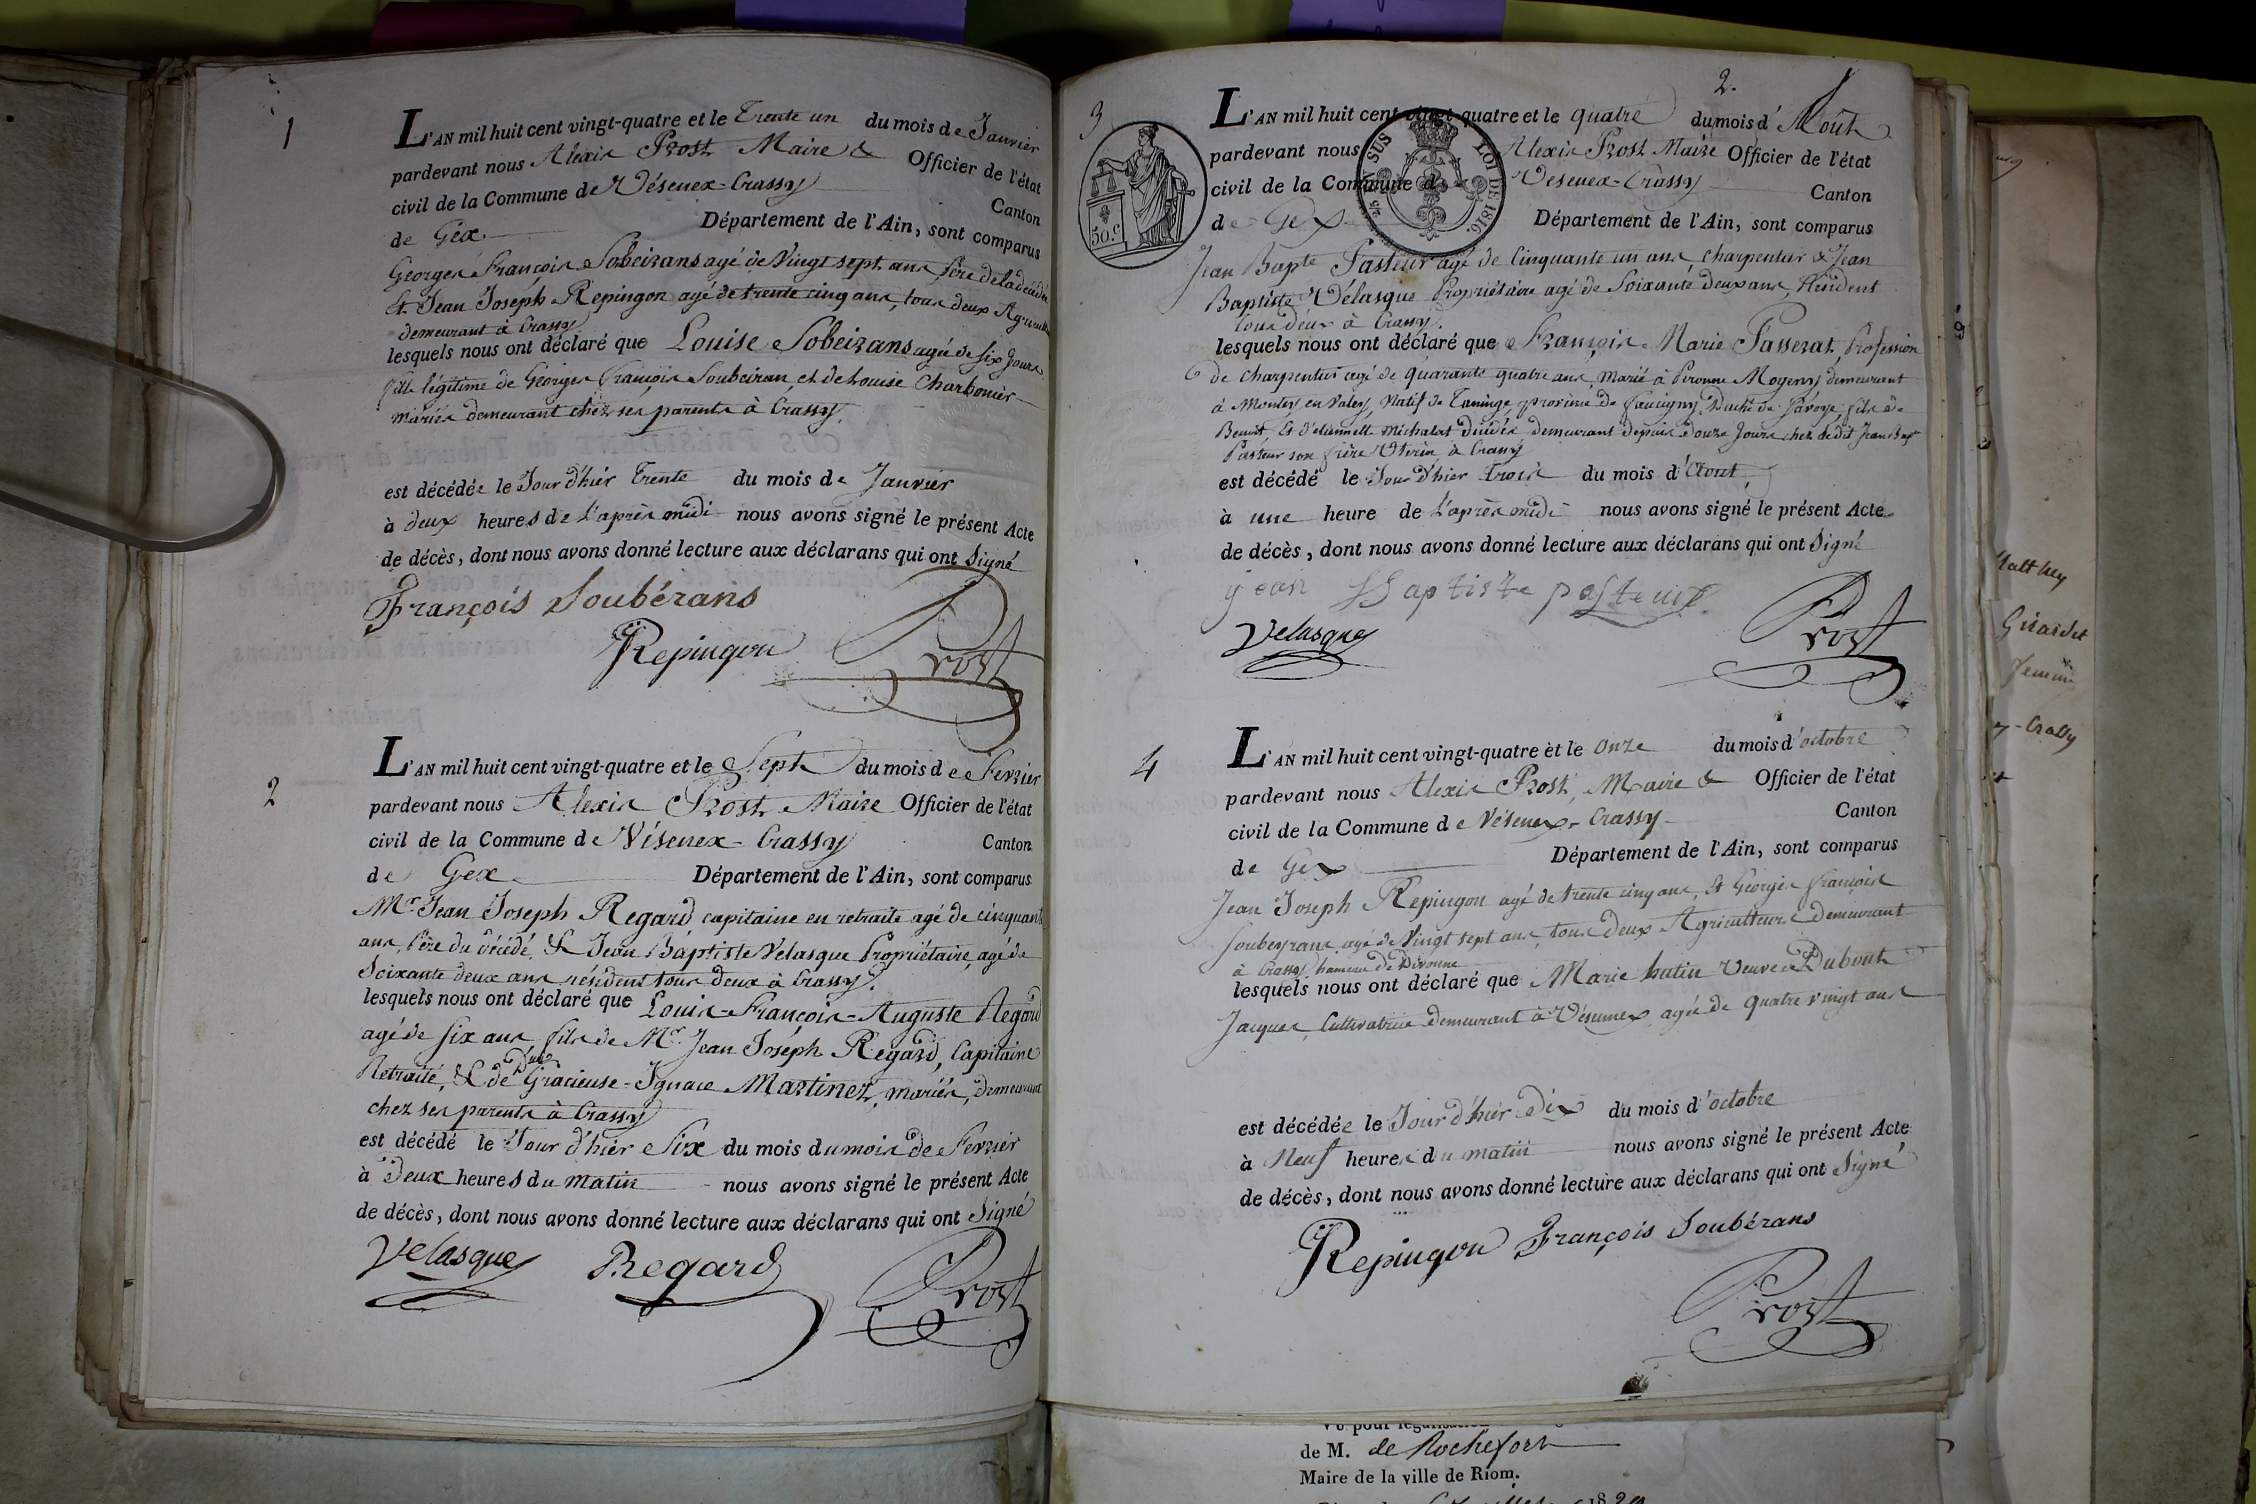 1
L'AN mil huit cent vingt-quatre et le Trente un du mois de Janvier
pardevant nous Alexis Prost Maire & Officier de l'état
civil de la Commune de Vésenex-Crassy Canton
de Gex Département de l'Ain, sont comparus
Georges François Sobeirans agé de Vingt sept ans, père de la décédée
Et Jean Joseph Repingon agé de trente cinq ans, tous deux
demeurant à Crassy
lesquels nous ont déclaré que Louise Sobeirans agée de six jours
fille légitime de Georges François Soubeiran, et de Louise Charbonier
mariés demeurant chez ses parents à Crassy.
est décédée le Jour d'hier Trente du mois de Janvier
à deux heures de l'après midi nous avons signé le présent Acte
de décès, dont nous avons donné lecture aux déclarans qui ont Signé
François Soubérans
Repingon Prost
2
L'AN mil huit cent vingt-quatre et le Sept du mois de Fevrier
pardevant nous Alexis Prost Maire Officier de l'état
civil de la Commune de Vésenex-Crassy Canton
de Gex Département de l'Ain, sont comparus
Mr. Jean Joseph Regard capitaine en retraite agé de cinquante
ans, Père du décédé, & Jean Baptiste Velasque Propriétaire, agé de
Soixante deux ans résident tous deux à Crassy.
lesquels nous ont déclaré que Louis-François-Auguste Regard
agé de six ans, fils de Mr. Jean Joseph Regard, Capitaine
Retraité, & de Dme Gracieuse-Ignace Martinez, mariés, demeurant
chez ses parents à Crassy
est décédé le Jour d'hier Six du mois du mois de Fevrier
à Deux heures du matin nous avons signé le présent Acte
de décès, dont nous avons donné lecture aux déclarans qui ont Signé
Velasque Regard Prost
2.
3
50.c
2/5 EN SUS
LOI DE 1816.
L'AN mil huit cent vingt-quatre et le quatre du mois d'Août
pardevant nous Alexis Prost Maire Officier de l'état
civil de la Commune de Vesenex-Crassy Canton
de Gex Département de l'Ain, sont comparus
Jean Bapte Pasteur agé de Cinquante un ans, charpentier & Jean
Baptiste Vélasque Propriétaire agé de Soixante deux ans, Résident
tous deux à Crassy.
lesquels nous ont déclaré que François Marie Passerat, Profession
de charpentier agé de quarante quatre ans, marié à Peronne Mogeny demeurant
à Montey en Valey, Natif de Taninge, province de faucigny Duché de Savoye, fils de
Benoit Et d'étiennette Michalat décédés demeurant depuis douze Jours chez le dit Jean Bapt
Pasteur son frère Uterin, à Crassy
est décédé le Jour d'hier trois du mois d'Aout,
à une heure de l'après midi nous avons signé le présent Acte
de décès, dont nous avons donné lecture aux déclarans qui ont Signé
jean Baptiste pasteur
Velasque Prost
4
L'AN mil huit cent vingt-quatre et le onze du mois d'octobre
pardevant nous Alexis Prost, Maire & Officier de l'état
civil de la Commune de Vésenex-Crassy Canton
de Gex Département de l'Ain, sont comparus
Jean Joseph Repingon agé de trente cinq ans, Et Georges François
Soubeyrans, agé de Vingt sept ans, tous deux Agriculteurs demeurant
à Crassy, hameau de Divonne
lesquels nous ont déclaré que Marie hatin Veuve Dubout
Jacques, Cultivatrice demeurant à Vésenex agée de quatre vingt ans
est décédée le Jour d'hier Dix du mois d'octobre
à Neuf heures du matin nous avons signé le présent Acte
de décès, dont nous avons donné lecture aux déclarans qui ont Signé
Repingon François Soubérans
Prost
Girardet
de M. de Rochefort
Maire de la ville de Riom.